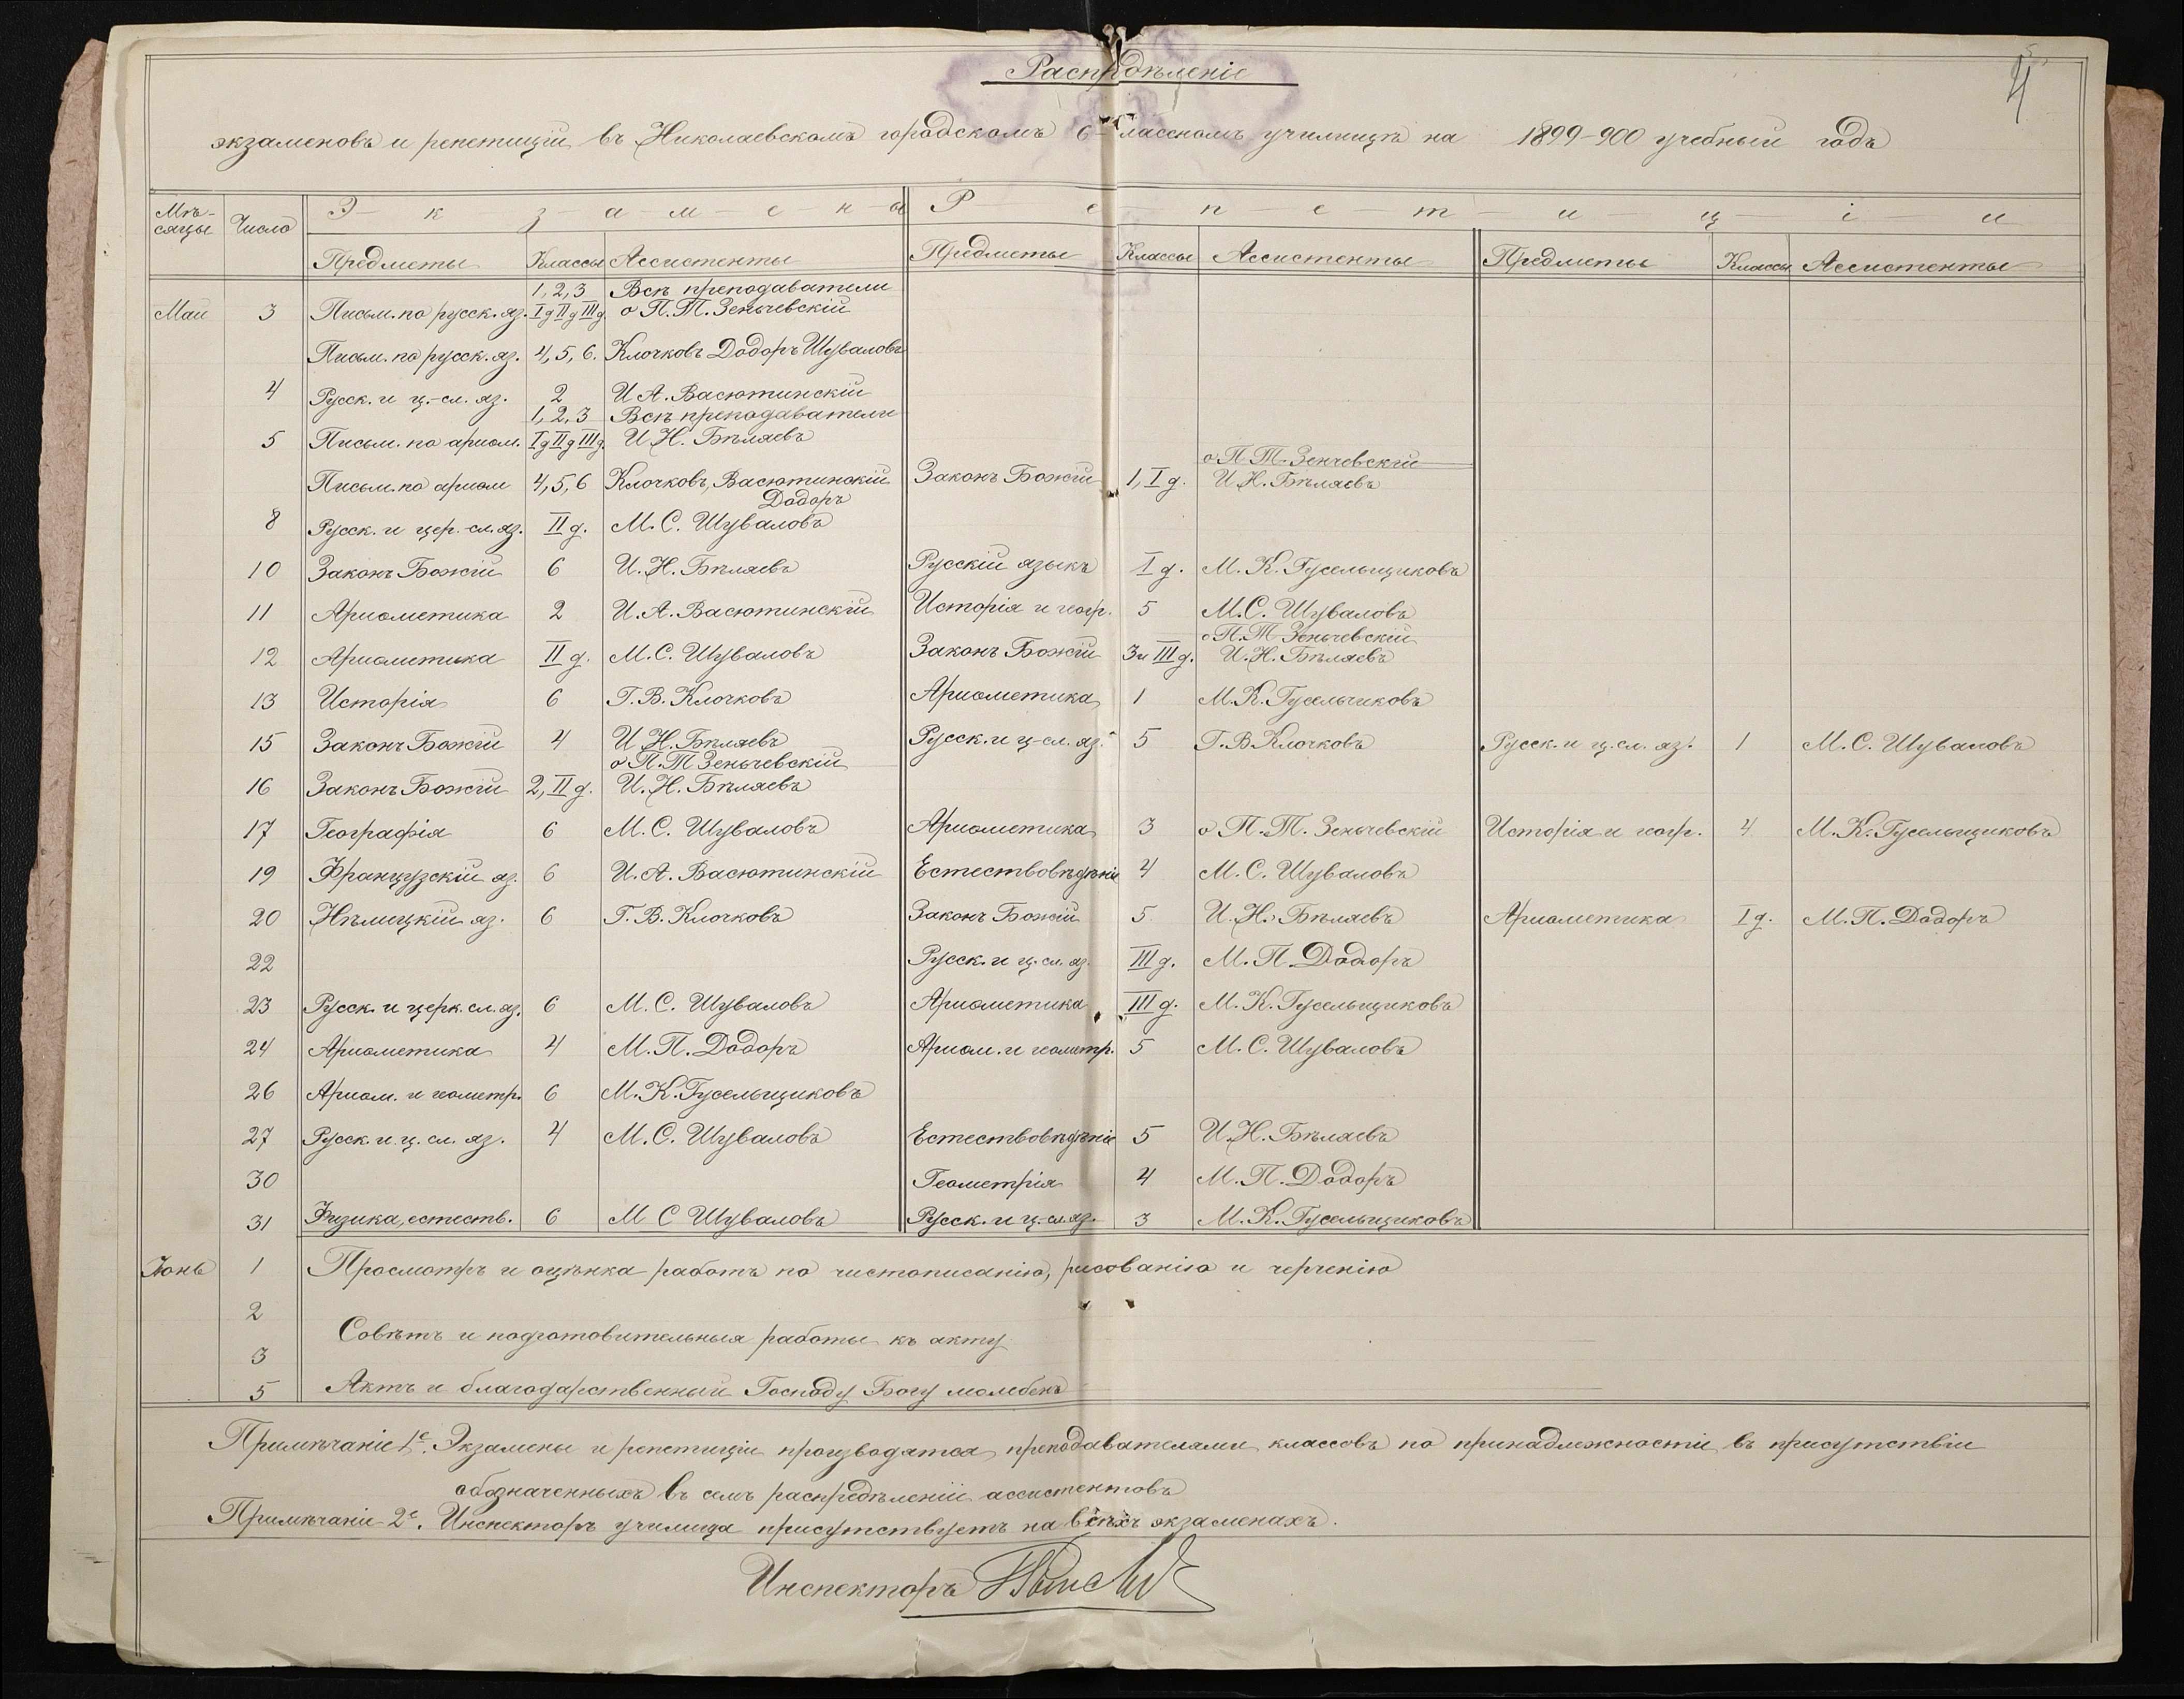 4
Распредѣленіе
экзаменовъ и репетицій въ Николаевскомъ городскомъ 6-классномъ училищѣ на 1899-900 учебный годъ
Мѣсяцы Число Экзамены Репетиціи
Предметы Классы Ассистенты Предметы Классы Ассистенты Предметы Классы Ассистенты
1, 2, 3 Всѣ преподаватели
Май 3 Письм. по русск. яз. Iд IIд IIIд о П. Т. Зеньчевскій
Письм. по русск. яз. 4, 5, 6. Клочковъ Додоръ Шуваловъ
4 Русск. и ц.-сл. яз. 2 И А. Васютинскій
1, 2, 3 Всѣ преподаватели
5 Письм. по ариѳм. Iд IIд IIIд. И Н. Бѣляевъ
о П. Т. Зенчевскій
Письм. по ариѳм 4, 5, 6 Клочковъ, Васютинскій Законъ Божій 1, I д. И. Н. Бѣляевъ
Додоръ
8 Русск. и цер.-сл. яз. II д. М. С. Шуваловъ
10 Законъ Божій 6 И. Н. Бѣляевъ Русскій языкъ I д. М. К. Гусельщиковъ
11 Ариѳметика 2 И. А. Васютинскій Исторія и геогр. 5 М. С. Шуваловъ
о П. Т Зеньчевскій
12 Ариѳметика II д. М. С. Шуваловъ Законъ Божій 3 и III д. И. Н. Бѣляевъ
13 Исторія 6 Г. В. Клочковъ Ариѳметика 1 М. К. Гусельчиковъ
15 Законъ Божій 4 И Н. Бѣляевъ Русск. и ц-сл. яз. 5 Г. В Клочковъ Русск. и ц. сл. яз. 1 М. С. Шуваловъ
о П. Т Зеньчевскій
16 Законъ Божій 2, II д. И. Н. Бѣляевъ
17 Географія 6 М. С. Шуваловъ Ариѳметика 3 о П. Т. Зеньчевскій Исторія и геогр. 4 М. К. Гусельщиковъ
19 Французскій яз. 6 И. А. Васютинскій Естествовѣдѣніе 4 М. С. Шуваловъ
20 Нѣмецкій яз. 6 Г. В. Клочковъ Законъ Божій 5 И. Н. Бѣляевъ Ариѳметика I д. М. П. Додоръ
22 Русск. и ц. сл. яз. III д. М. П. Додоръ
23 Русск. и церк. сл. яз. 6 М. С. Шуваловъ Ариѳметика III д. М. К. Гусельщиковъ
24 Ариѳметика 4 М. П. Додоръ Ариѳм. и геометр. 5 М. С. Шуваловъ
26 Ариѳм. и геометр. 6 М. К. Гусельщиковъ
27 Русск. и ц. сл. яз. 4 М. С. Шуваловъ Естествовѣдѣніе 5 И. Н. Бѣляевъ
30 Геометрія 4 М. П. Додоръ
31 Физика, естеств. 6 М С Шуваловъ Русск. и ц.-сл. яз. 3 М. К. Гусельщиковъ
Іюнь 1 Просмотръ и оцѣнка работъ по чистописанію, рисованію и черченію
2
Совѣтъ и подготовительныя работы къ акту
3
5 Актъ и благодарственный Господу Богу молебенъ
Примѣчаніе 1е. Экзамены и репетиціи производятся преподавателями классовъ по принадлежности въ присутствіи
обозначенныхъ въ семъ распредѣленіи ассистентовъ
Примѣчаніе 2е. Инспекторъ училища присутствуетъ на всѣхъ экзаменахъ.
Инспекторъ